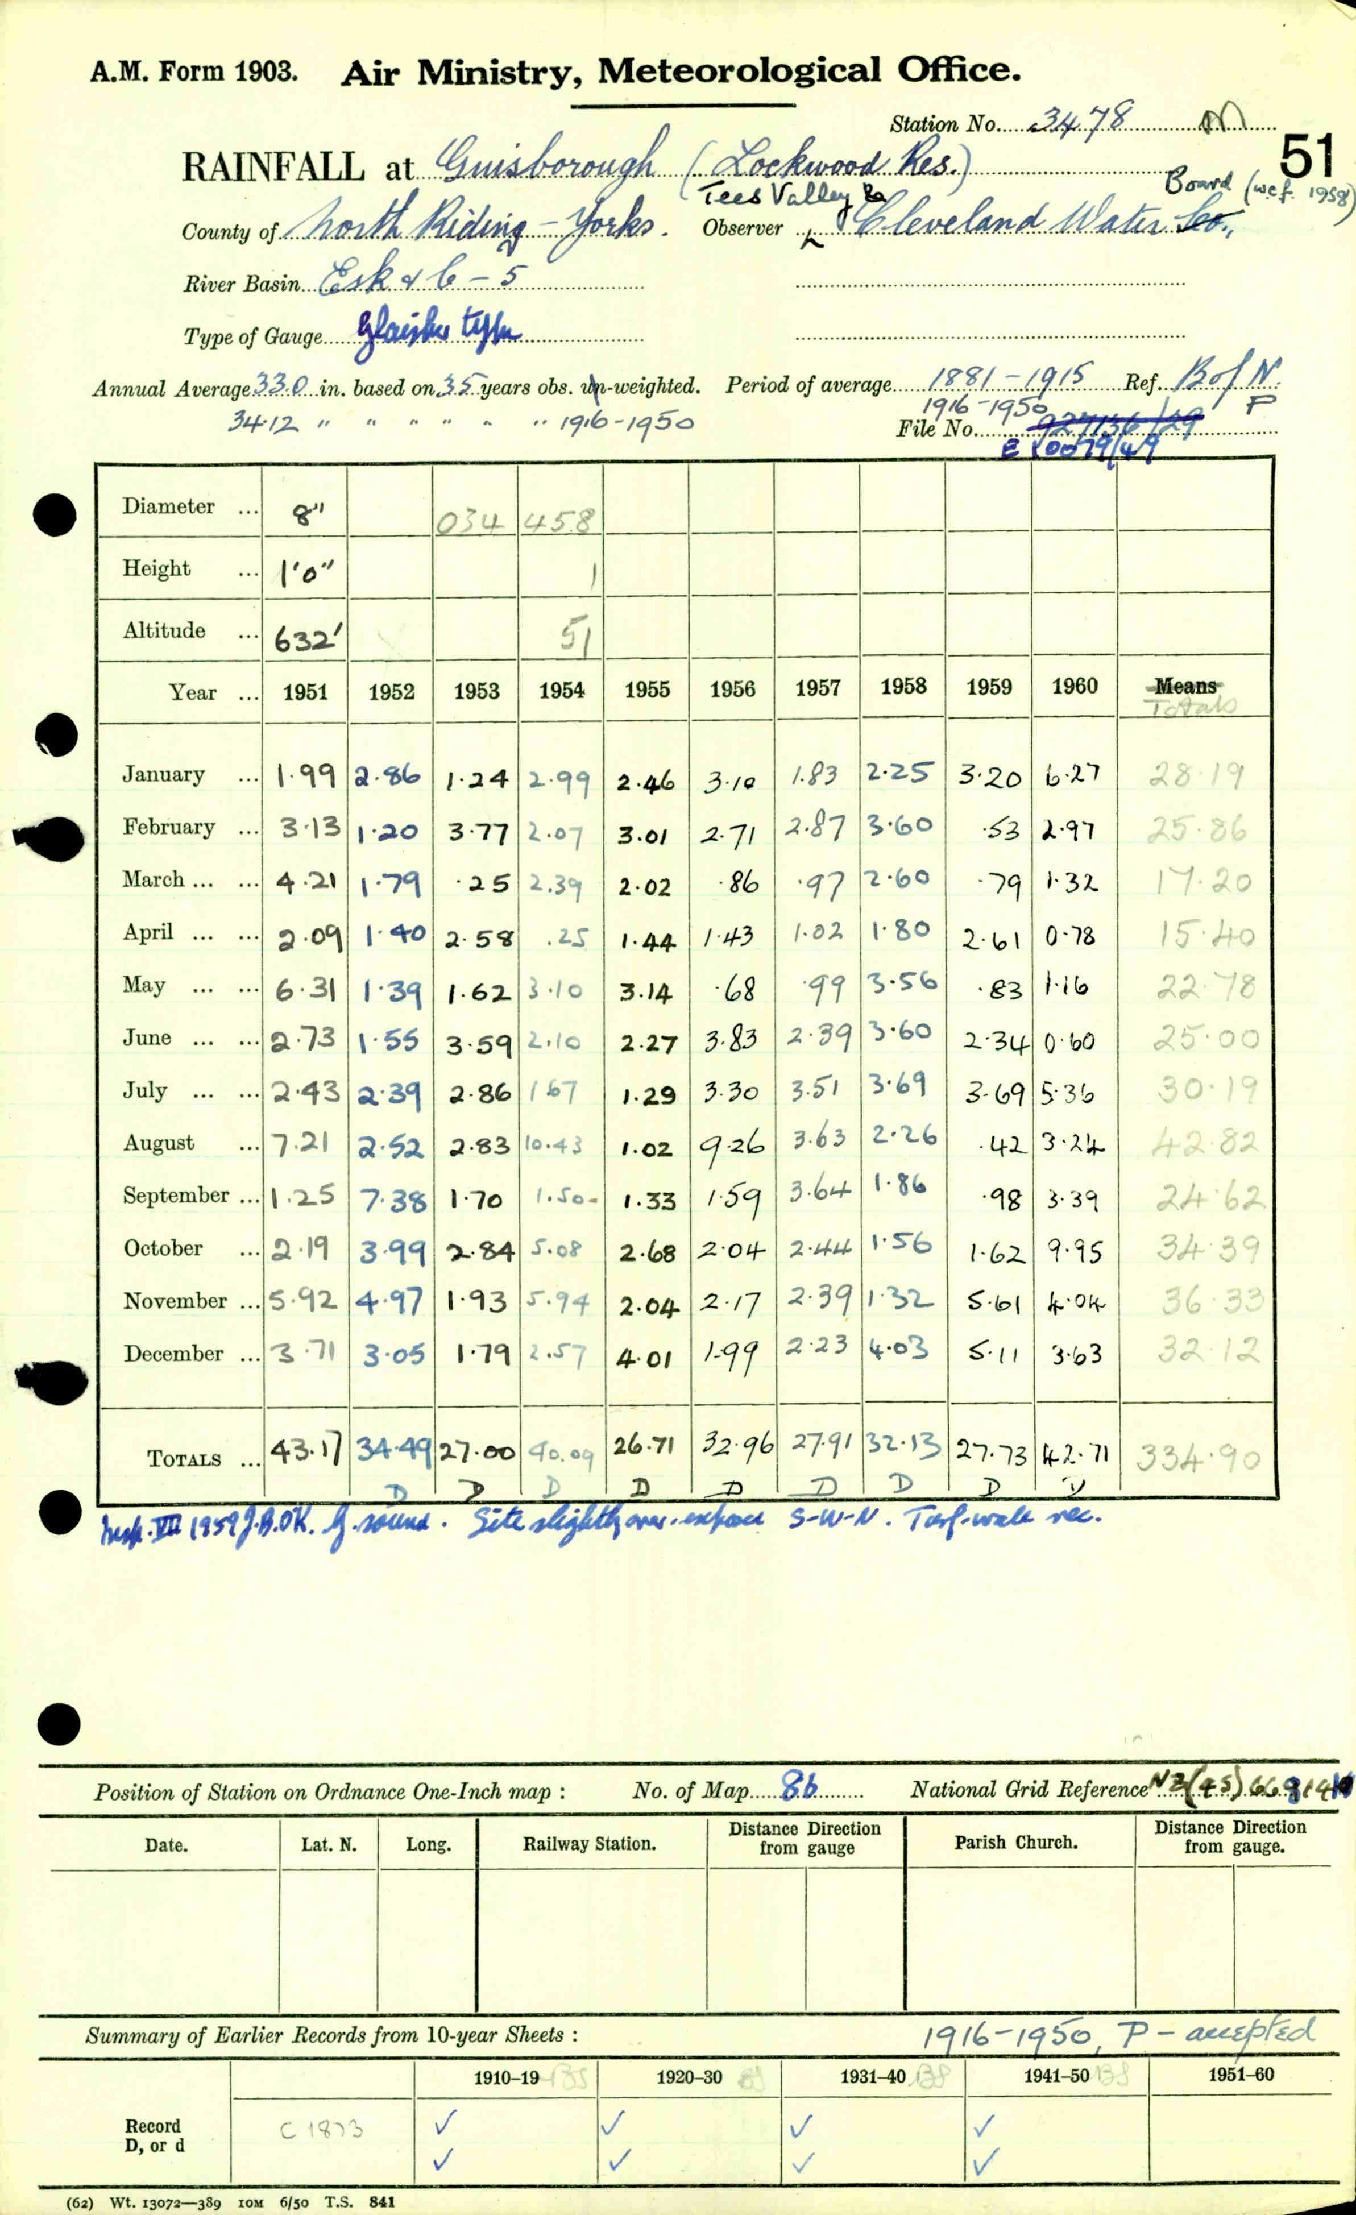 A.M. Form 1903. Air Ministry, Meteorological Office.
Station No. 3478 M
51
RAINFALL at Guisborough (Lockwood Res.)
Tees Valley & Board (w.e.f. 1958)
County of North Riding - Yorks. Observer Cleveland Water Co.,
River Basin Esk & C - 5
Type of Gauge Glaisher type
Annual Average 33.0 in. based on 35 years obs. un-weighted. Period of average 1881-1915 Ref. B of N.
34.12 " " " " " " 1916-1950 1916-1950 P
File No. 927136/29
E 10079/49
Diameter ... 8" 034 458
Height ... 1'0" 1
Altitude ... 632' 51
Year ... 1951 1952 1953 1954 1955 1956 1957 1958 1959 1960 Means
Totals
January ... 1.99 2.86 1.24 2.99 2.46 3.10 1.83 2.25 3.20 6.27 28.19
February ... 3.13 1.20 3.77 2.07 3.01 2.71 2.87 3.60 .53 2.97 25.86
March ... ... 4.21 1.79 .25 2.39 2.02 .86 .97 2.60 .79 1.32 17.20
April ... ... 2.09 1.40 2.58 .25 1.44 1.43 1.02 1.80 2.61 0.78 15.40
May ... ... 6.31 1.39 1.62 3.10 3.14 .68 .99 3.56 .83 1.16 22.78
June ... ... 2.73 1.55 3.59 2.10 2.27 3.83 2.39 3.60 2.34 0.60 25.00
July ... ... 2.43 2.39 2.86 1.67 1.29 3.30 3.51 3.69 3.69 5.36 30.19
August ... 7.21 2.52 2.83 10.43 1.02 9.26 3.63 2.26 .42 3.24 42.82
September ... 1.25 7.38 1.70 1.50 1.33 1.59 3.64 1.86 .98 3.39 24.62
October ... 2.19 3.99 2.84 5.08 2.68 2.04 2.44 1.56 1.62 9.95 34.39
November ... 5.92 4.97 1.93 5.94 2.04 2.17 2.39 1.32 5.61 4.04 36.33
December ... 3.71 3.05 1.79 2.57 4.01 1.99 2.23 4.03 5.11 3.63 32.12
TOTALS ... 43.17 34.49 27.00 40.09 26.71 32.96 27.91 32.13 27.73 42.71 334.90
D D D D D D D D D
Insp. VII 1959 J.B. OK. G. sound. Site slightly over-exposed S-W-N. Turf-wall rec.
Position of Station on Ordnance One-Inch map : No. of Map 86 National Grid Reference NZ (45)
Date. Lat. N. Long. Railway Station. Distance Direction from gauge Parish Church. Distance Direction from gauge.
Summary of Earlier Records from 10-year Sheets : 1916-1950, P - accepted
1910–19 1920–30 1931–40 1941–50 1951–60
Record C 1873 ✓ ✓ ✓ ✓
D, or d ✓ ✓ ✓ ✓
(62) Wt. 13072—389 10M 6/50 T.S. 841